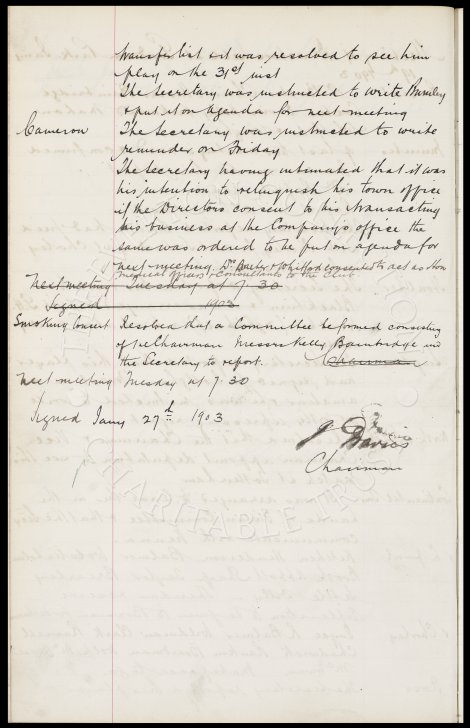 transfer list & it was resolved to see him
play on the 31st inst
The Secretary was instructed to write Burnley
& put it on agenda for next meeting
Cameron The Secretary was instructed to write
reminder on Friday
The Secretary having intimated that it was
his intention to relinquish his town office
if the Directors consent to his transacting
his business at the Company's office the
same was ordered to be put on agenda for
next meeting. Drs Baxter & Whitford consented to act as Hon
medical Consultants to the Club
Next meeting Tuesday at 7.30
Signed 1903
Smoking Concert Resolved that a Committee be formed consisting
of the Chairman Messrs Kelly Bainbridge and
the Secretary to report. Chairman
Next meeting Tuesday at 7.30
Signed Jany 27th 1903
J Davies
Chairman
CHARITABLE TRUST